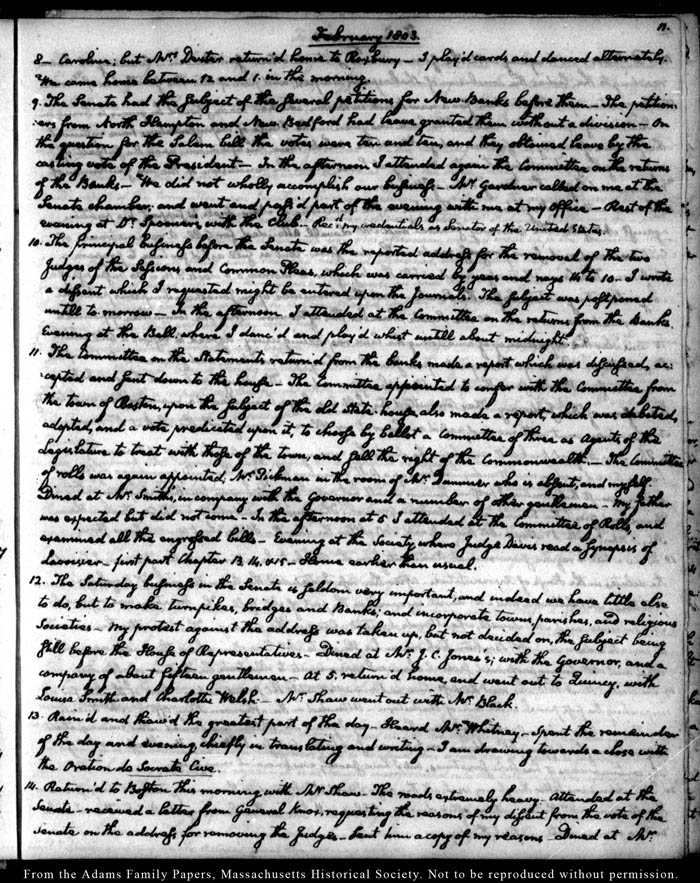 11.
February 1803.
8 — Caroline; but Mrs. Dexter return'd home to Roxbury — I play'd cards and danced alternately.
We came home between 12 and 1. in the morning.
9. The Senate had the subject of the several petitions for New Banks before them — The petition-
ers from North Hampton and New Bedford had leave granted them without a division — On
the question for the Salem bill the votes were ten and ten, and they obtained leave by the
casting vote of the President — In the afternoon I attended again the Committee on the returns
of the Banks — We did not wholly accomplish our business — Mr. Gardner called on me at the
Senate chamber, and went and pass'd part of the evening with me at my Office — Rest of the
evening at Dr. Spooner's, with the Club — Recd. my credentials as Senator of the United States.
10. The principal business before the Senate was the reported address for the removal of the two
Judges of the Sessions and Common Pleas, which was carried by yeas and nays 14 to 10 — I wrote
a dissent which I requested might be entered upon the Journals. The subject was postponed
untill to morrow — In the afternoon I attended at the Committee on the returns from the Banks.
Evening at the Ball, where I danc'd and play'd whist untill about midnight.
11. The Committee on the Statements return'd from the banks made a report which was discussed, ac-
cepted and sent down to the house — The Committee appointed to confer with the Committee from
the town of Boston, upon the subject of the old State-house, also made a report, which was debated,
adopted, and a vote predicated upon it, to choose by ballot a Committee of three as Agents of the
Legislature to treat with those of the town, and sell the right of the Commonwealth — The Committee
of rolls was again appointed, Mr. Pickman in the room of Mr. Dummer who is absent, and myself.
Dined at Mr. Smith's, in company with the Governor and a number of other gentlemen — My father
was expected but did not come — In the afternoon at 5 I attended at the Committee of Rolls, and
examined all the engrossed bills — Evening at the Society, where Judge Davis read a Synopsis of
Lavoisier — first part Chapter 13. 14. &15 — Home earlier than usual.
12. The Saturday business in the Senate is seldom very important, and indeed we have little else
to do, but to make turnpikes, bridges and Banks, and incorporate towns, parishes, and religious
Societies — My protest against the address was taken up, but not decided on, the subject being
still before the House of Representatives — Dined at Mr. J. C. Jones's; with the Governor, and a
company of about fifteen gentlemen — At 5. return'd home, and went out to Quincy, with
Louisa Smith and Charlotte Welsh — Mr. Shaw went out with Mr. Black.
13. Rain'd and thaw'd the greatest part of the day — Heard Mr. Whitney — Spent the remainder
of the day and evening chiefly in translating and writing — I am drawing towards a close with
the Oration de Socrate Cive.
14. Return'd to Boston this morning with Mr. Shaw. The roads extremely heavy — Attended at the
Senate — received a letter from General Knox, requesting the reasons of my dissent from the vote of the
Senate on the address for removing the Judges — Sent him a copy of my reasons — Dined at Mr.
From the Adams Family Papers, Massachusetts Historical Society. Not to be reproduced without permission.